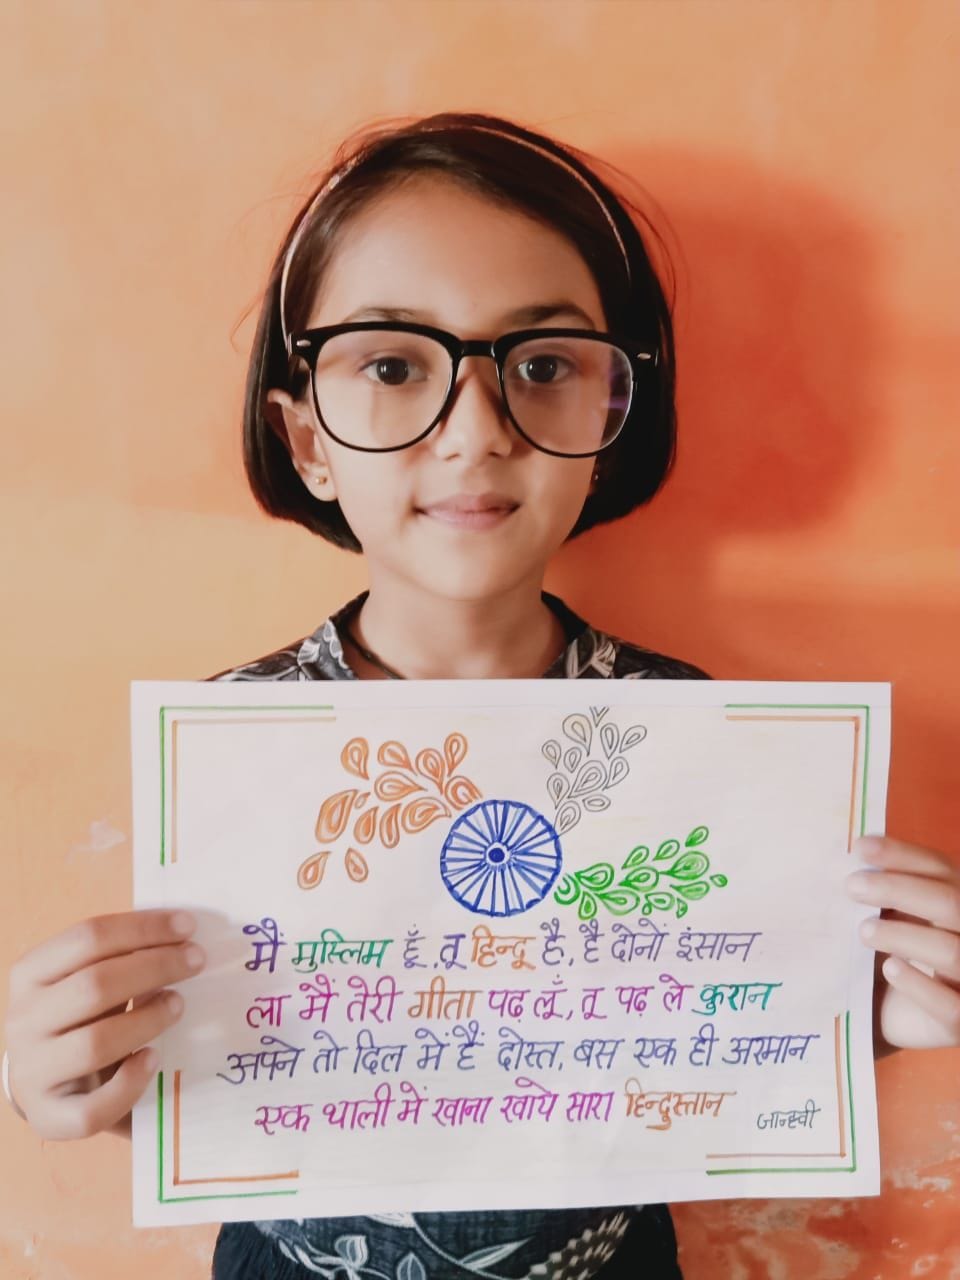 मैं मुस्लिम हूँ, तू हिन्दू है, है दोनों इंसान
ला मैं तेरी गीता पढ़ लूँ, तू पढ़ ले कुरान
अपने तो दिल में है दोस्त, बस एक ही अरमान
एक थाली में खाना खाये सारा हिन्दुस्तान
जान्हवी